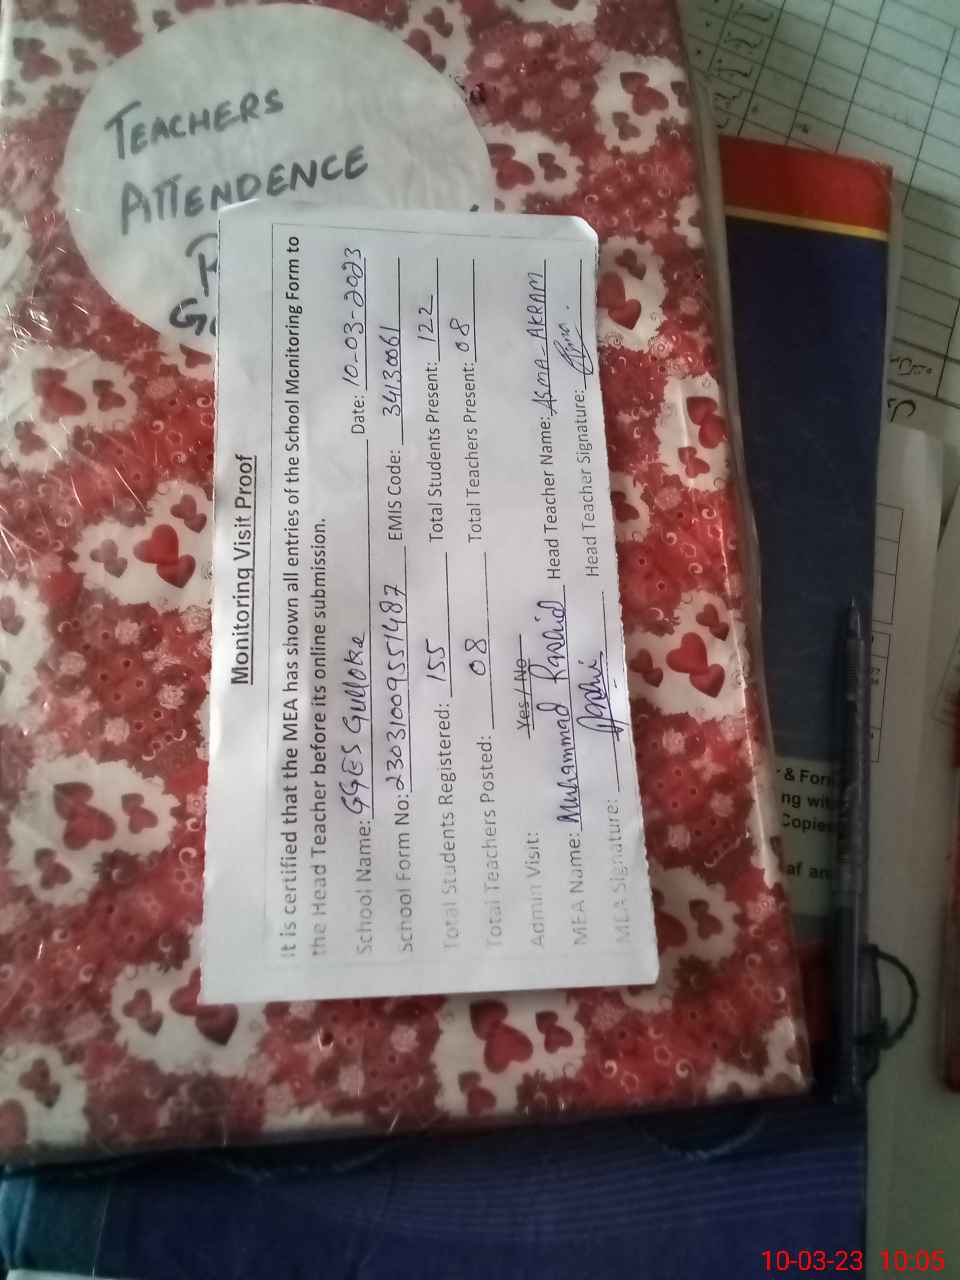 TEACHERS
ATTENDENCE
Monitoring Visit Proof
It is certified that the MEA has shown all entries of the School Monitoring Form to
the Head Teacher before its online submission.
School Name: GGES Gulloke Date: 10-03-2023
School Form No: 23031009551487 EMIS Code: 34130061
Total Students Registered: 155 Total Students Present: 122
Total Teachers Posted: 08 Total Teachers Present: 08
Admin Visit: Yes / No
MEA Name: Muhammad Rashid Head Teacher Name: ASMA-AKRAM
MEA Signature: Head Teacher Signature:
& Form
ng with
Copies
af an
10-03-23 10:05